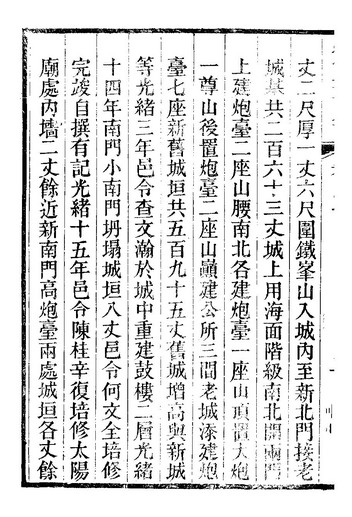 丈二尺厚一丈六尺圍鐵峯山入城內至新北門接老
城基共二百六十三丈城上用海面階級南北開兩門
上建炮臺二座山腰南北各建炮臺一座山頂置大炮
一尊山後置炮臺二座山巔建公所三間老城添建炮
臺七座新舊城垣共五百九十五丈舊城增高與新城
等光緒三年邑令查文瀚於城中重建鼓樓二層光緒
十四年南門小南門坍塌城垣八丈邑令何文全培修
完竣自撰有記光緒十五年邑令陳桂辛復培修太陽
廟處內墻二丈餘近新南門高炮臺兩處城垣各丈餘